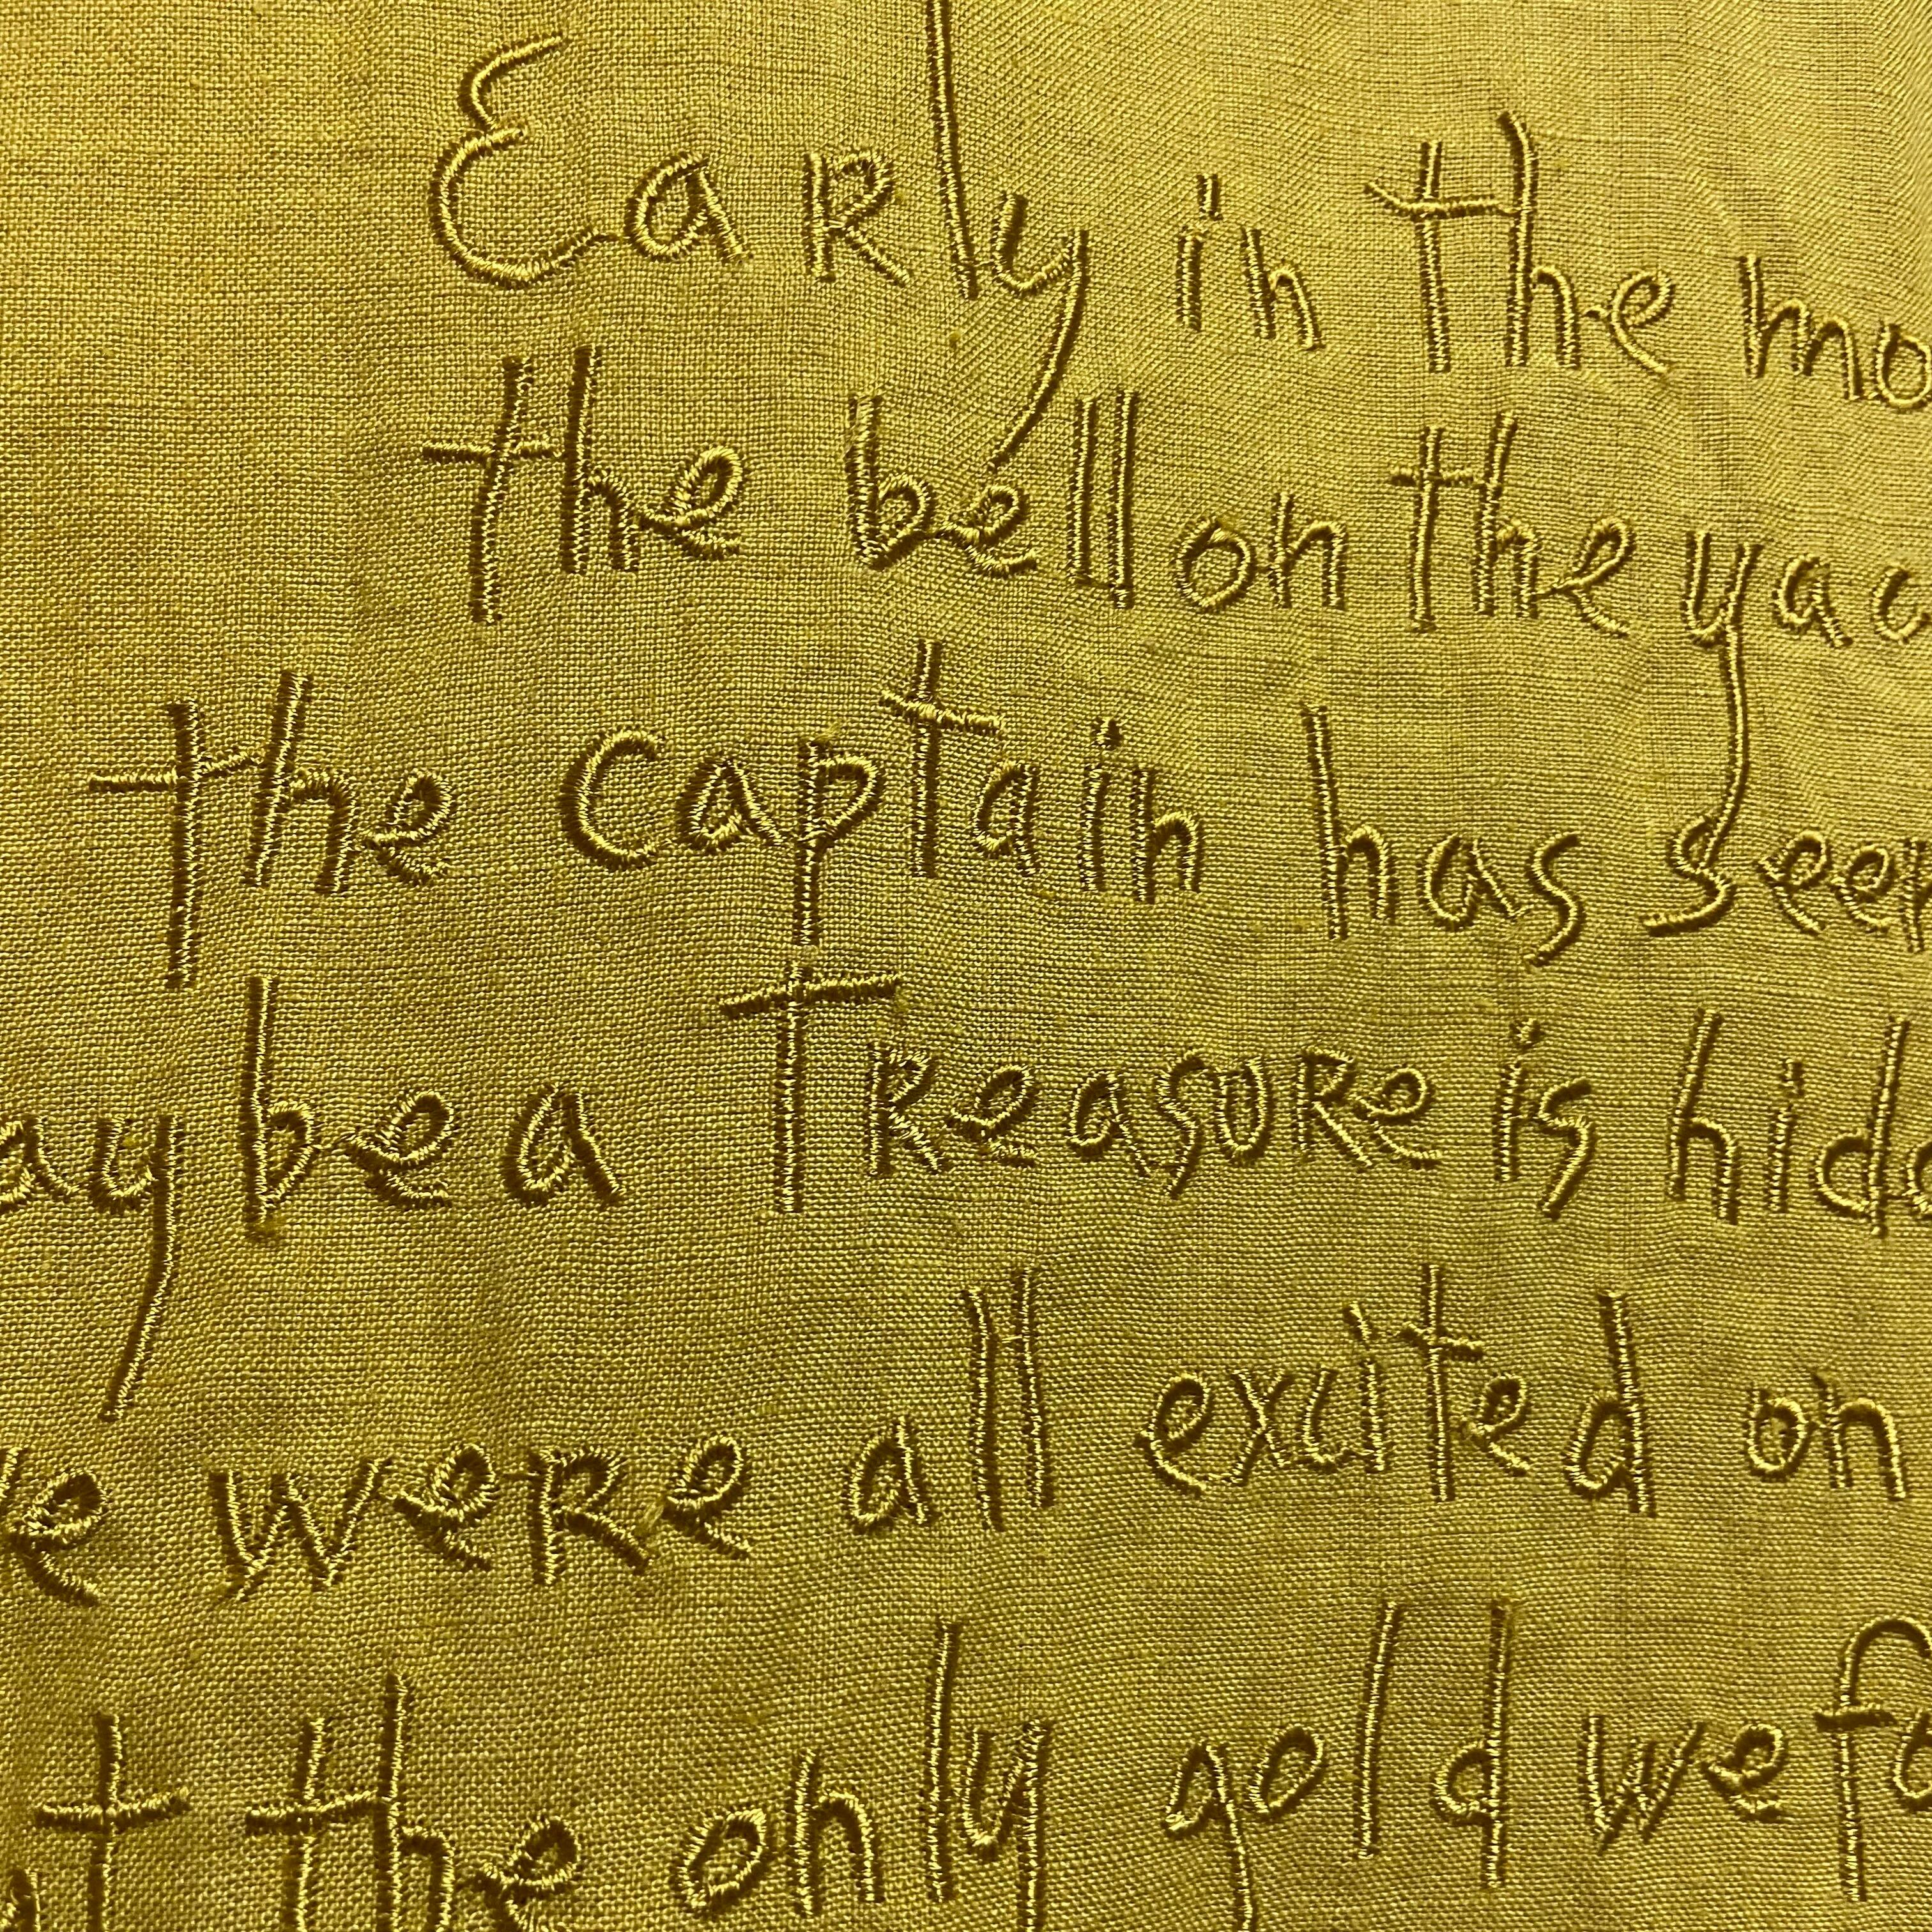 Early in the mo
the bell on the yac
the captain has seen
aybe a treasure is hidd
e were all excited on
t the only gold we fo